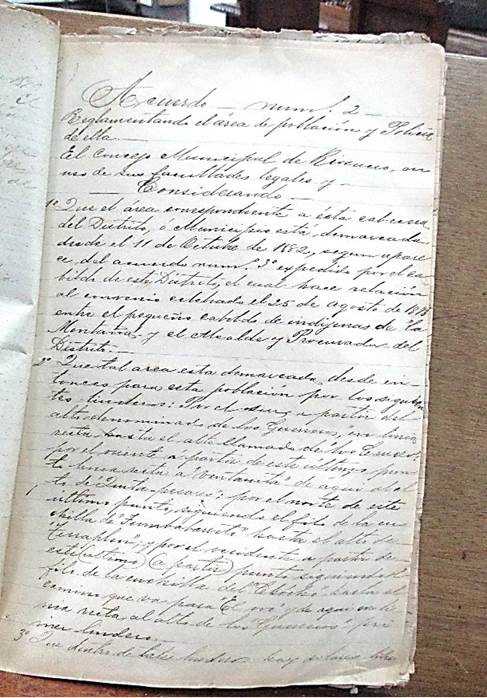 Acuerdo – num. 2 –
Reglamentando el área de población y Policía
de ella
El Concejo Municipal de Riosucio, en
uso de sus facultades legales y –
– Considerando –
1º Que el área correspondiente a ésta cabecera
del Distrito, o Municipio está demarcada
desde el 11 de Octubre de 1882, segun apare
ce del acuerdo num. 3º expedido por el ca
bildo de este Distrito, el cual hace relación
al convenio celebrado el 25 de agosto de
entre el pequeño cabildo de indíjenas de La
Montaña y el Alcalde y Procurador del
Distrito.
2º Que tal area esta demarcada, desde en
tonces para esta población por los siguien
tes linderos: Por el sur, a partir del
alto denominado de los en linea
recta hasta el alto llamado de las Cruces,
por el oriente a partir de este ultimo pun
to linea recta a de aquí al al
to de por el norte de este
ultimo punto, siguiendo el filo de la cu
chilla de hasta el alto de
y por el occidente a partir de
este ultimo (a partir) punto siguiendo el
filo de la cuchilla del hasta el
camino que va para y de aquí en li
nea recta al alto de los pri
mer lindero
3º Que dentro de estos linderos hay